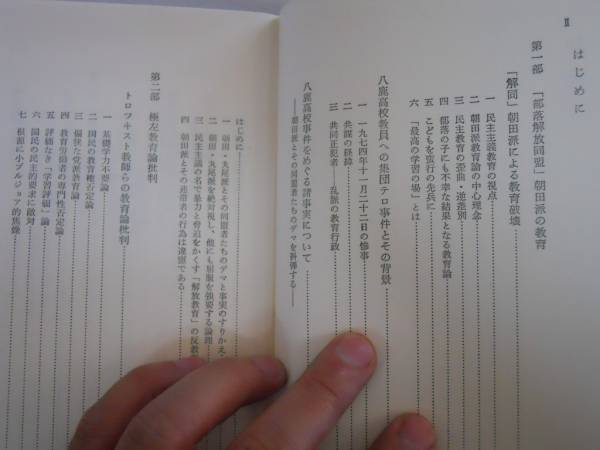 II
はじめに
第一部 「部落解放同盟」朝田派の教育
「解同」朝田派による教育破壊
一 民主主義教育の視点
二 朝田派教育論の中心理念
三 民主教育の歪曲・逆差別
四 部落の子にも不幸な結果となる教育論
五 こどもを蛮行の先兵に
六 「最高の学習の場」とは
八鹿高校教員への集団テロ事件とその背景
一 一九七四年十一月二十二日の惨事
二 共謀の経緯
三 共同正犯者——乱脈の教育行政
八鹿高校事件をめぐる諸事実について
——朝田派とその同盟者たちのデマを糾弾する——
はじめに
一 朝田・丸尾派とその同盟者たちのデマと事実のすりかえ
二 朝田・丸尾派を絶対視し、他にも屈服を強要する論理
三 民主主義の名で暴力と脅迫をかくす「解放教育」の反教
四 朝田派とその追従者の行為は違憲である
第二部 極左教育論批判
トロツキスト教師らの教育論批判
一 基礎学力不要論
二 国民の教育権否定論
三 偏狭な党派教育論
四 教育労働者の専門性否定論
五 評価なき「学習評価」論
六 国民の民主的要求に敵対
七 根源に小ブルジョア的焦燥